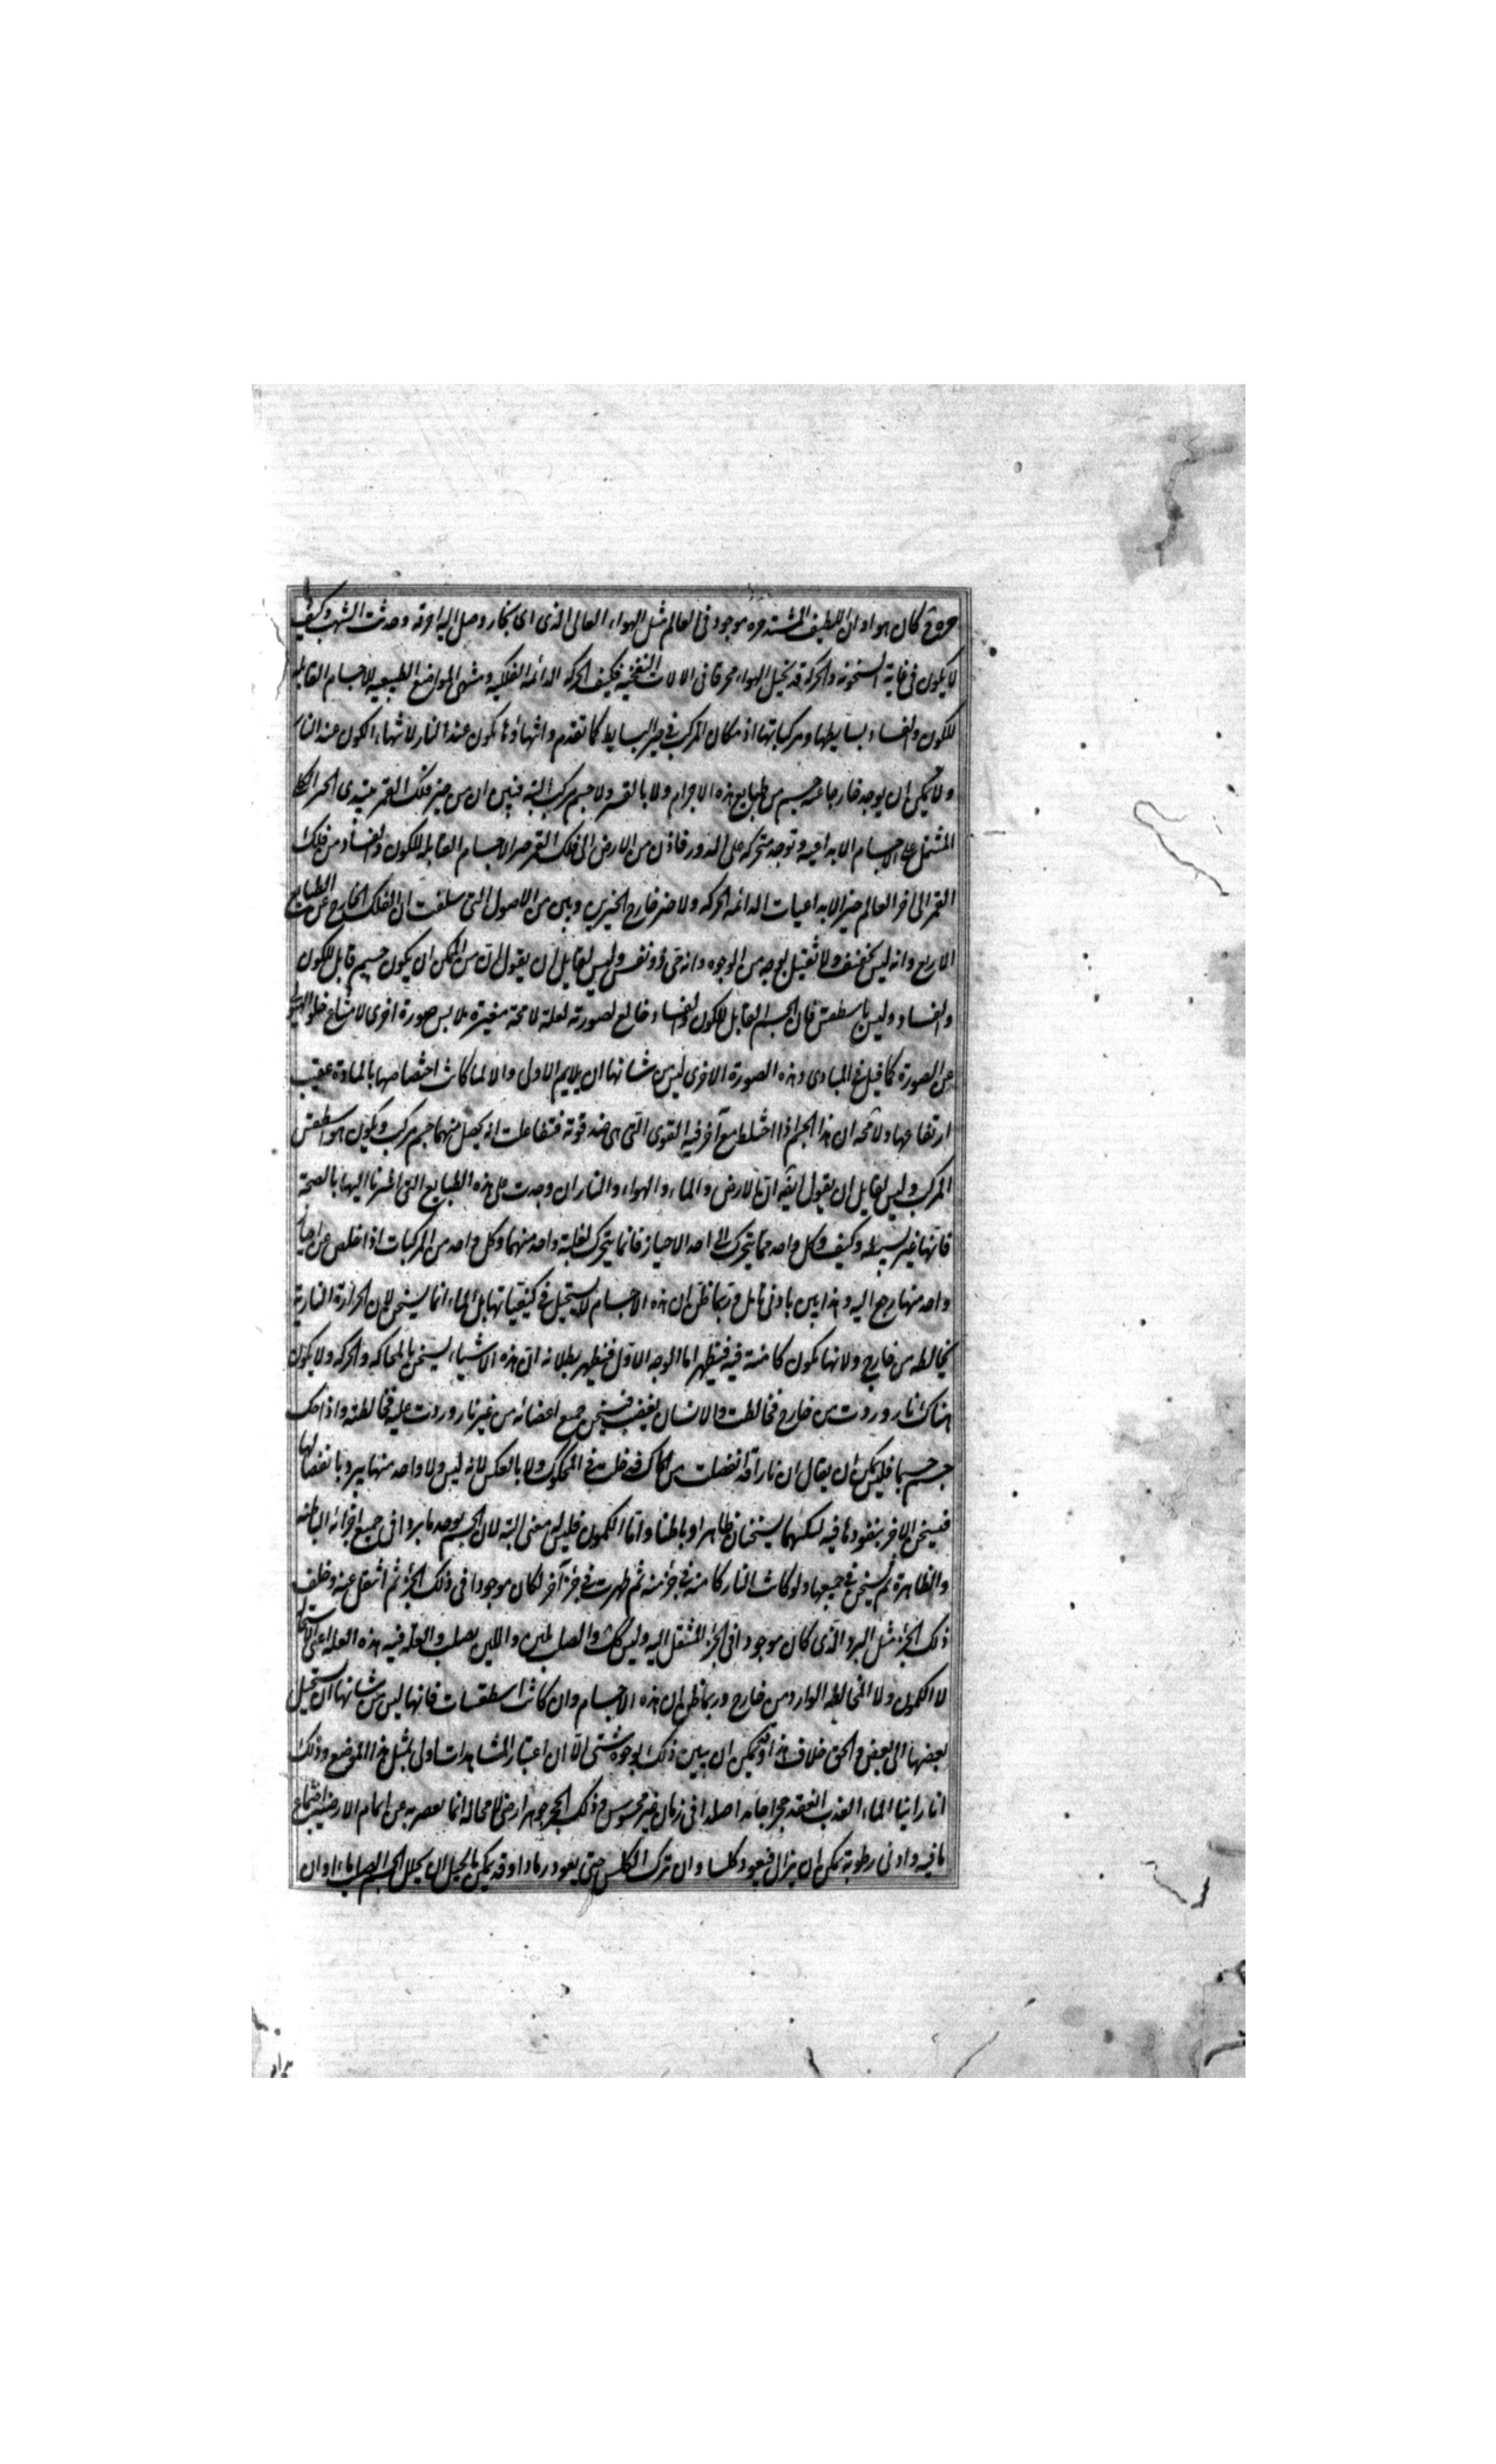 حره وح كان هواء وان اللطيف المشتد حره موجود في العالم مثل الهواء العالى الذى اى بخار وصل اليه احرقه وحدثت الشهب وكيف
لا يكون في غاية السخونة والحركة قد تحيل الهواء محرقا في الالات النفخية فكيف الحركة الدائمة الفلكية ومنتهى المواضع الطبيعية للاجسام القابلة
للكون والفساد بسايطها ومركباتها اذ مكان المركب في حيز البسايط كما تقدم وانتهاؤها يكون عند النار لانتهاء الكون عند النار
ولا يمكن ان يوجد خارجا عنه جسم من طبايع هذه الاجرام ولا بالقسر ولا جسم مركب البتة فتبين ان من حيز فلك القمر يبتدى الحيز الكلى
المشتمل على الاجسام الابداعية وتوجد متحركه على الدور فاذن من الارض الى فلك القمر حيز الاجسام القابلة للكون والفساد ومن فلك
القمر الى اخر العالم حيز الابداعيات الدائمة الحركة ولا حيز خارج الحيزين وبين من الاصول التى سلفت ان الفلك خارج عن الطبايع
الاربع وانه ليس بخفيف ولا ثقيل بوجه من الوجوه وانه حى ذو نفس وليس لقايل ان يقول ان من الممكن ان يكون جسم قابل للكون
والفساد وليس باسطقس فان الجسم القابل للكون والفساد خالع لصورته لعلة لا محة مغيرة ملابس صورة اخرى لامتناع خلو الهيولى
عن الصورة كما قيل في المبادى وهذه الصورة الاخرى ليس من شانها ان يلايم الاول والا لما كانت اختصاصها بالمادة عقيب
ارتفاعها ولا محه ان هذا الجرم اذا اختلط مع آخر فيه القوى التى هى ضد قوته فتفاعلت انه يحصل منهما جسم مركب ويكون هو اسطقس
المركب وليس لقايل ان يقول ايضه ان الارض والماء والهواء والنار ان وجدت على هذه الطبايع التى اشرنا اليها بالصحة
فانها غير بسيطه وكيف وكل واحد مما يتحرك الى احد الاحياز فانما يتحرك لغلبة واحد منهما وكل واحد من المركبات اذا خلص عن
واحد منها رجع اليه وهذا يبين بادنى تامل وربما ظن ان هذه الاجسام لا يستحيل في كيفياتها بل الماء انما يسخن لان الحرارة النارية
تخالطه من خارج ولانها يكون كامنة فيه فيظهر اما الوجه الاول فيظهر بطلانه ان هذه الاشياء يسخن بالمحاكه والحركه ولا يكون
هناك نار وردت من خارج فخالطت والانسان يغضب فيسخن جميع اعضائه من غير نار وردت عليه فخالطته واذا حك
جسم جسما فلا يمكن ان يقال ان نارا قد انفصلت من الحاك فدخلت في المحكوك ولا بالعكس لانه ليس ولا واحد منهما يبرد بانفصالها
فيسخن الاخر بنفوذها فيه لكنهما يسخنان ظاهرا وباطنا واما الكمون فليس له معنى البتة لان الجسم يوجد باردا في جميع اجزائه الباطنه
والظاهرة ثم يسخن في جميعها ولو كانت النار كامنة في جزء منه ثم ظهرت في جزء آخر لكان موجودا في ذلك الجزء ثم انتقل عنه وخلف
ذلك الجزء مثل البرد الذى كان موجودا في الجزء المنتقل اليه وليس كك والصلب يلين واللين يصلب والعلة فيه هذه العله اعنى الاستحالة
لا الكمون ولا المخالطه الوارد من خارج وربما ظن ان هذه الاجسام وان كانت اسطقسات فانها ليس من شانها ان يستحيل
بعضها الى بعض والحق خلاف هذا وقد يمكن ان يبين ذلك بوجوه شتى الا ان اعتبار المشاهدات اولى بمثل هذا الموضع وذلك
انا راينا الماء العذب انعقد حجرا جامدا صلدا في زمان غير محسوس وذلك الحجر جوهر ارضى لا محالة انما يعصر به عن اتمام الارضية اجتماع
ما فيه وادنى رطوبة يمكن ان يزال فيعود كلسا وان ترك الكلس حتى يعود رمادا وقد يمكن بالحيل ان يحلل الجسم الصلب ماء او ان